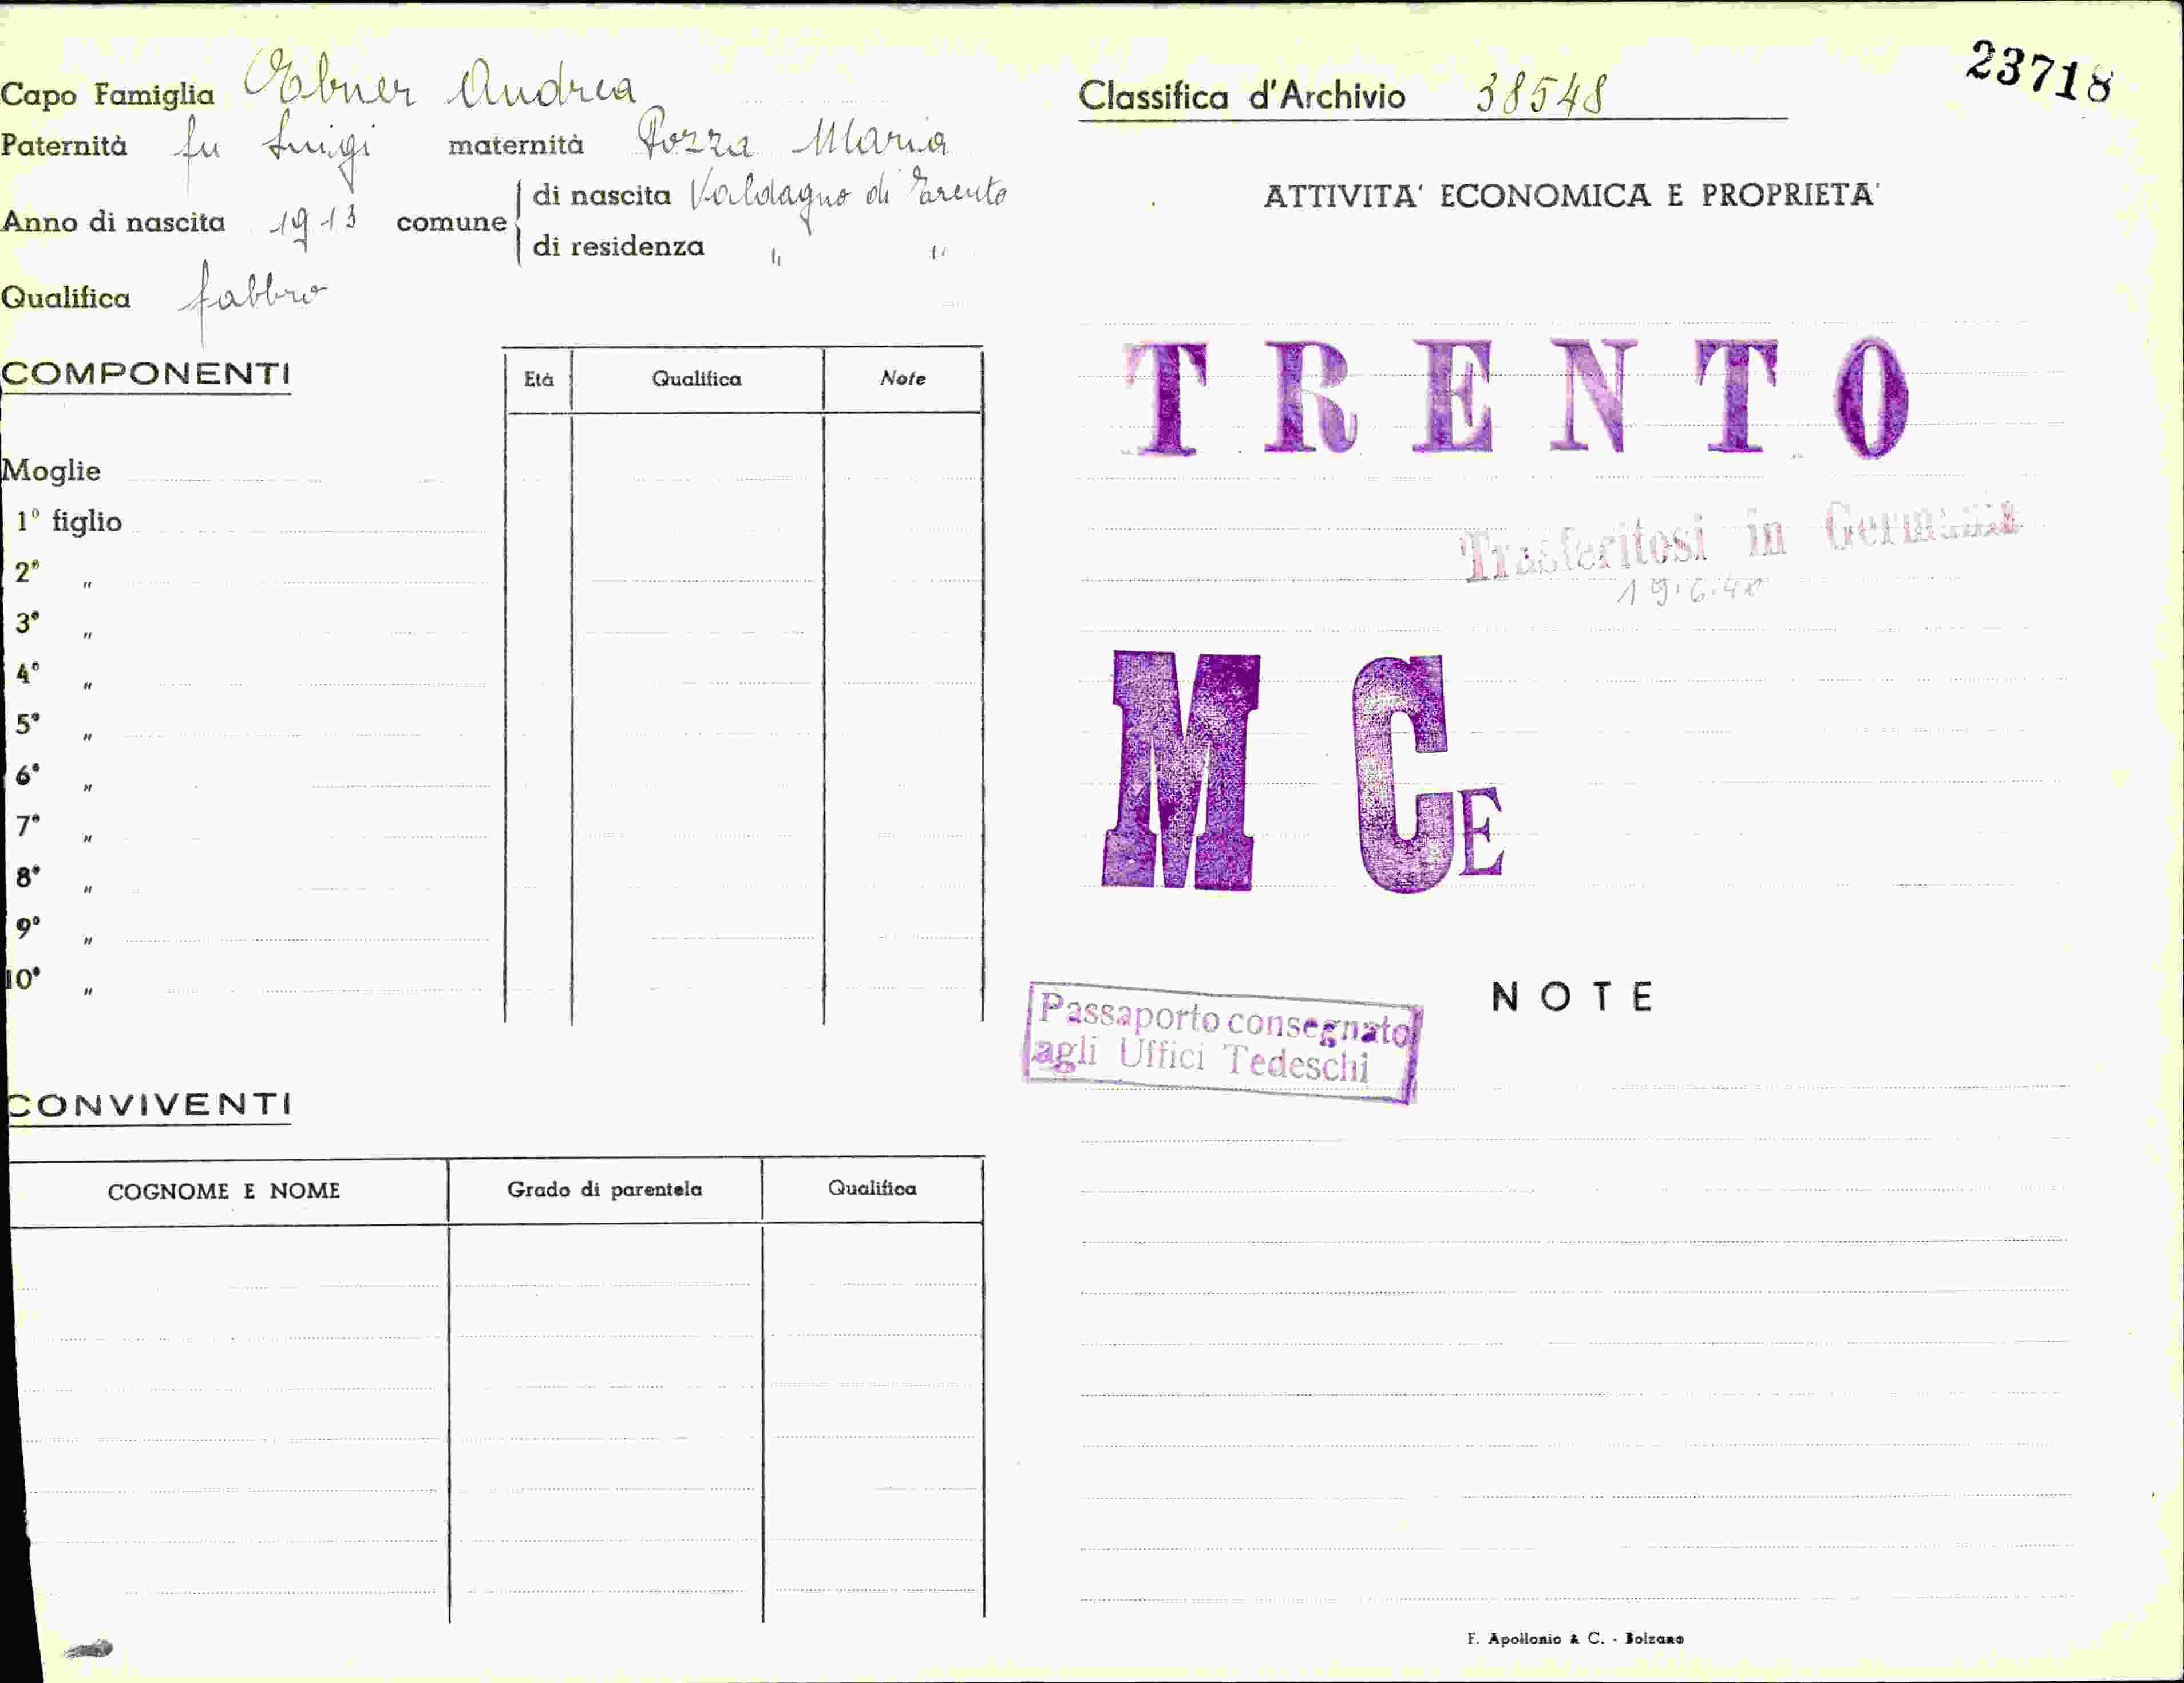 Capo Famiglia Ebner Andrea
Paternità fu Luigi maternità Pozza Maria
Anno di nascita 1913 comune di nascita Valdagno di Trento
di residenza " "
Qualifica fabbro
COMPONENTI
Età Qualifica Note
Moglie
1° figlio
2° "
3° "
4° "
5° "
6° "
7° "
8° "
9° "
10° "
CONVIVENTI
COGNOME E NOME Grado di parentela Qualifica
23718
Classifica d'Archivio 38548
ATTIVITA' ECONOMICA E PROPRIETA'
TRENTO
Trasferitosi in Germania
19.6.40
M CE
NOTE
Passaporto consegnato
agli Uffici Tedeschi
F. Apollonio & C. - Bolzano